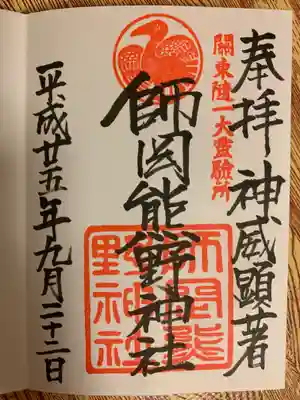 奉拝 神威顕著
関東随一大霊験所
師岡熊野神社
師岡熊
野神社
平成廿五年九月二十二日